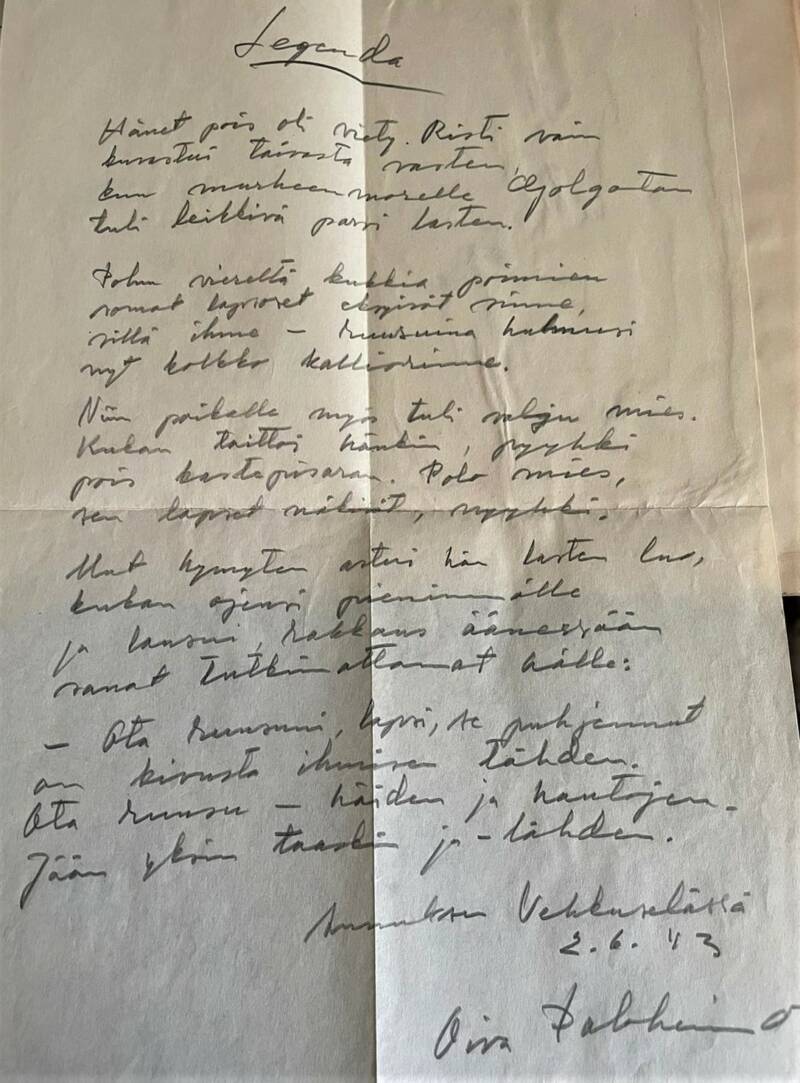 Legenda
Hänet pois oli viety. Risti vain
kuvastui taivasta vasten,
kun murheenmaselle Golgatan
tuli leikkivä parvi lasten.
Polun viereltä kukkia poimien
somat lapsoset eksyivät sinne,
sillä ihme – ruusuina hulmusi
nyt kolkko kalliorinne.
Niin paikalle myös tuli mies.
Kukan taittoi hänkin, pyyhki
pois kastepisaran. Polo mies,
sen lapset näkivät, nyyhki.
Mut hymyten astui hän lasten luo,
kukan ojensi pienimmälle
ja lausui, rakkaus äänessään
sanat tutkimattomat hälle:
– Ota ruusuni, lapsi, se puhjennut
on kivusta ihmisen tähden.
Ota ruusu – häiden ja hautojen.
Jään yksin taaskin ja – lähden.
Aunuksen Vehkuselässä
2.6. '43
Oiva Paloheimo